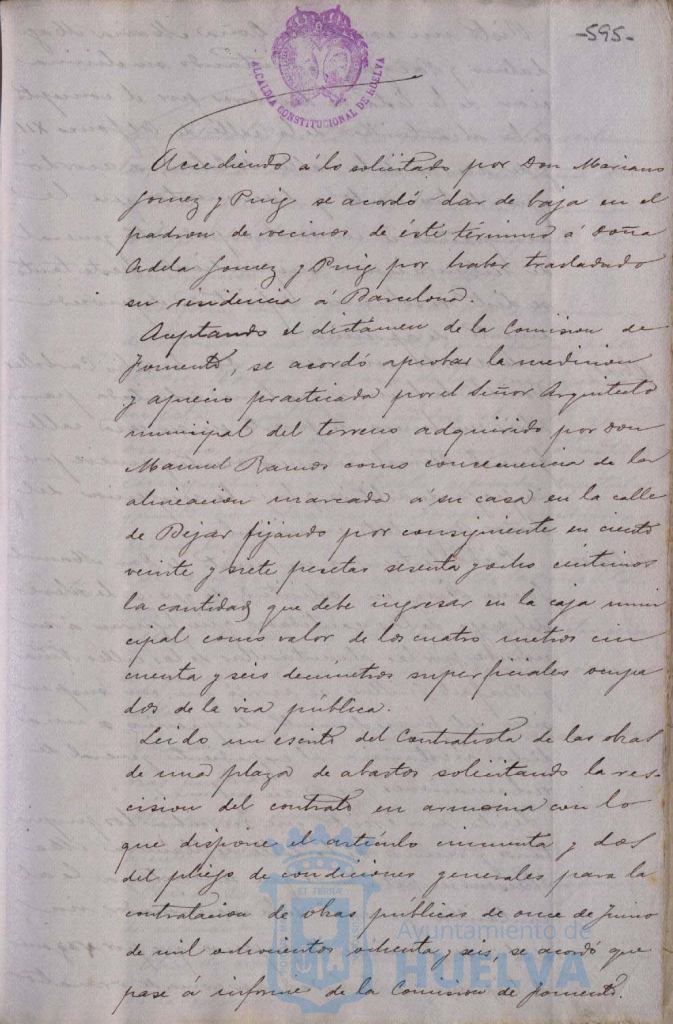 -595-
ALCALDIA CONSTITUCIONAL DE HUELVA
Accediendo á lo solicitado por Don Mariano
Gomez y Puig se acordó dar de baja en el
padron de vecinos de éste término á Doña
Adela Gomez y Puig por haber trasladado
su residencia á Barcelona.
Aceptando el dictámen de la Comision de
Fomento, se acordó aprobar la medicion
y aprecio practicada por el Señor Arquitecto
municipal del terreno adquirido por Don
Manuel Ramos como consecuencia de la
alineacion marcada á su casa en la calle
de Bejar fijando por consiguiente en ciento
veinte y siete pesetas sesenta y ocho céntimos
la cantidad que debe ingresar en la caja muni
cipal como valor de los cuatro metros cin
cuenta y seis decimetros superficiales ocupa
dos de la via pública.
Leido un escrito del Contratista de las obras
de una plaza de abastos solicitando la res-
cision del contrato en armonia con lo
que dispone el artículo cincuenta y dos
del pliego de condiciones generales para la
contratacion de obras públicas de once de Junio
de mil ochocientos ochenta y seis, se acordó que
pase á informe de la Comision de Fomento.
Ayuntamiento de
HUELVA